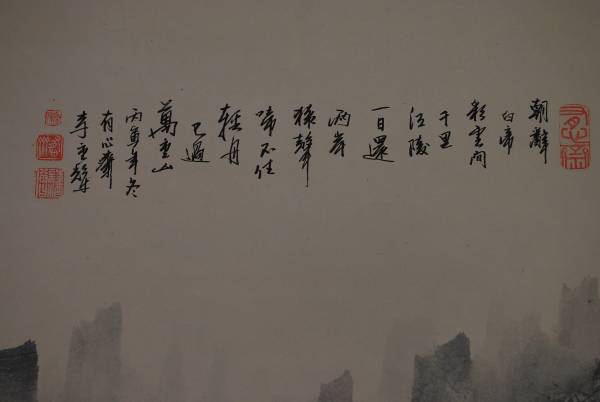 朝辭
白帝
彩雲間
千里
江陵
一日還
兩岸
猿聲
啼不住
輕舟
已過
萬重山
丙寅年冬